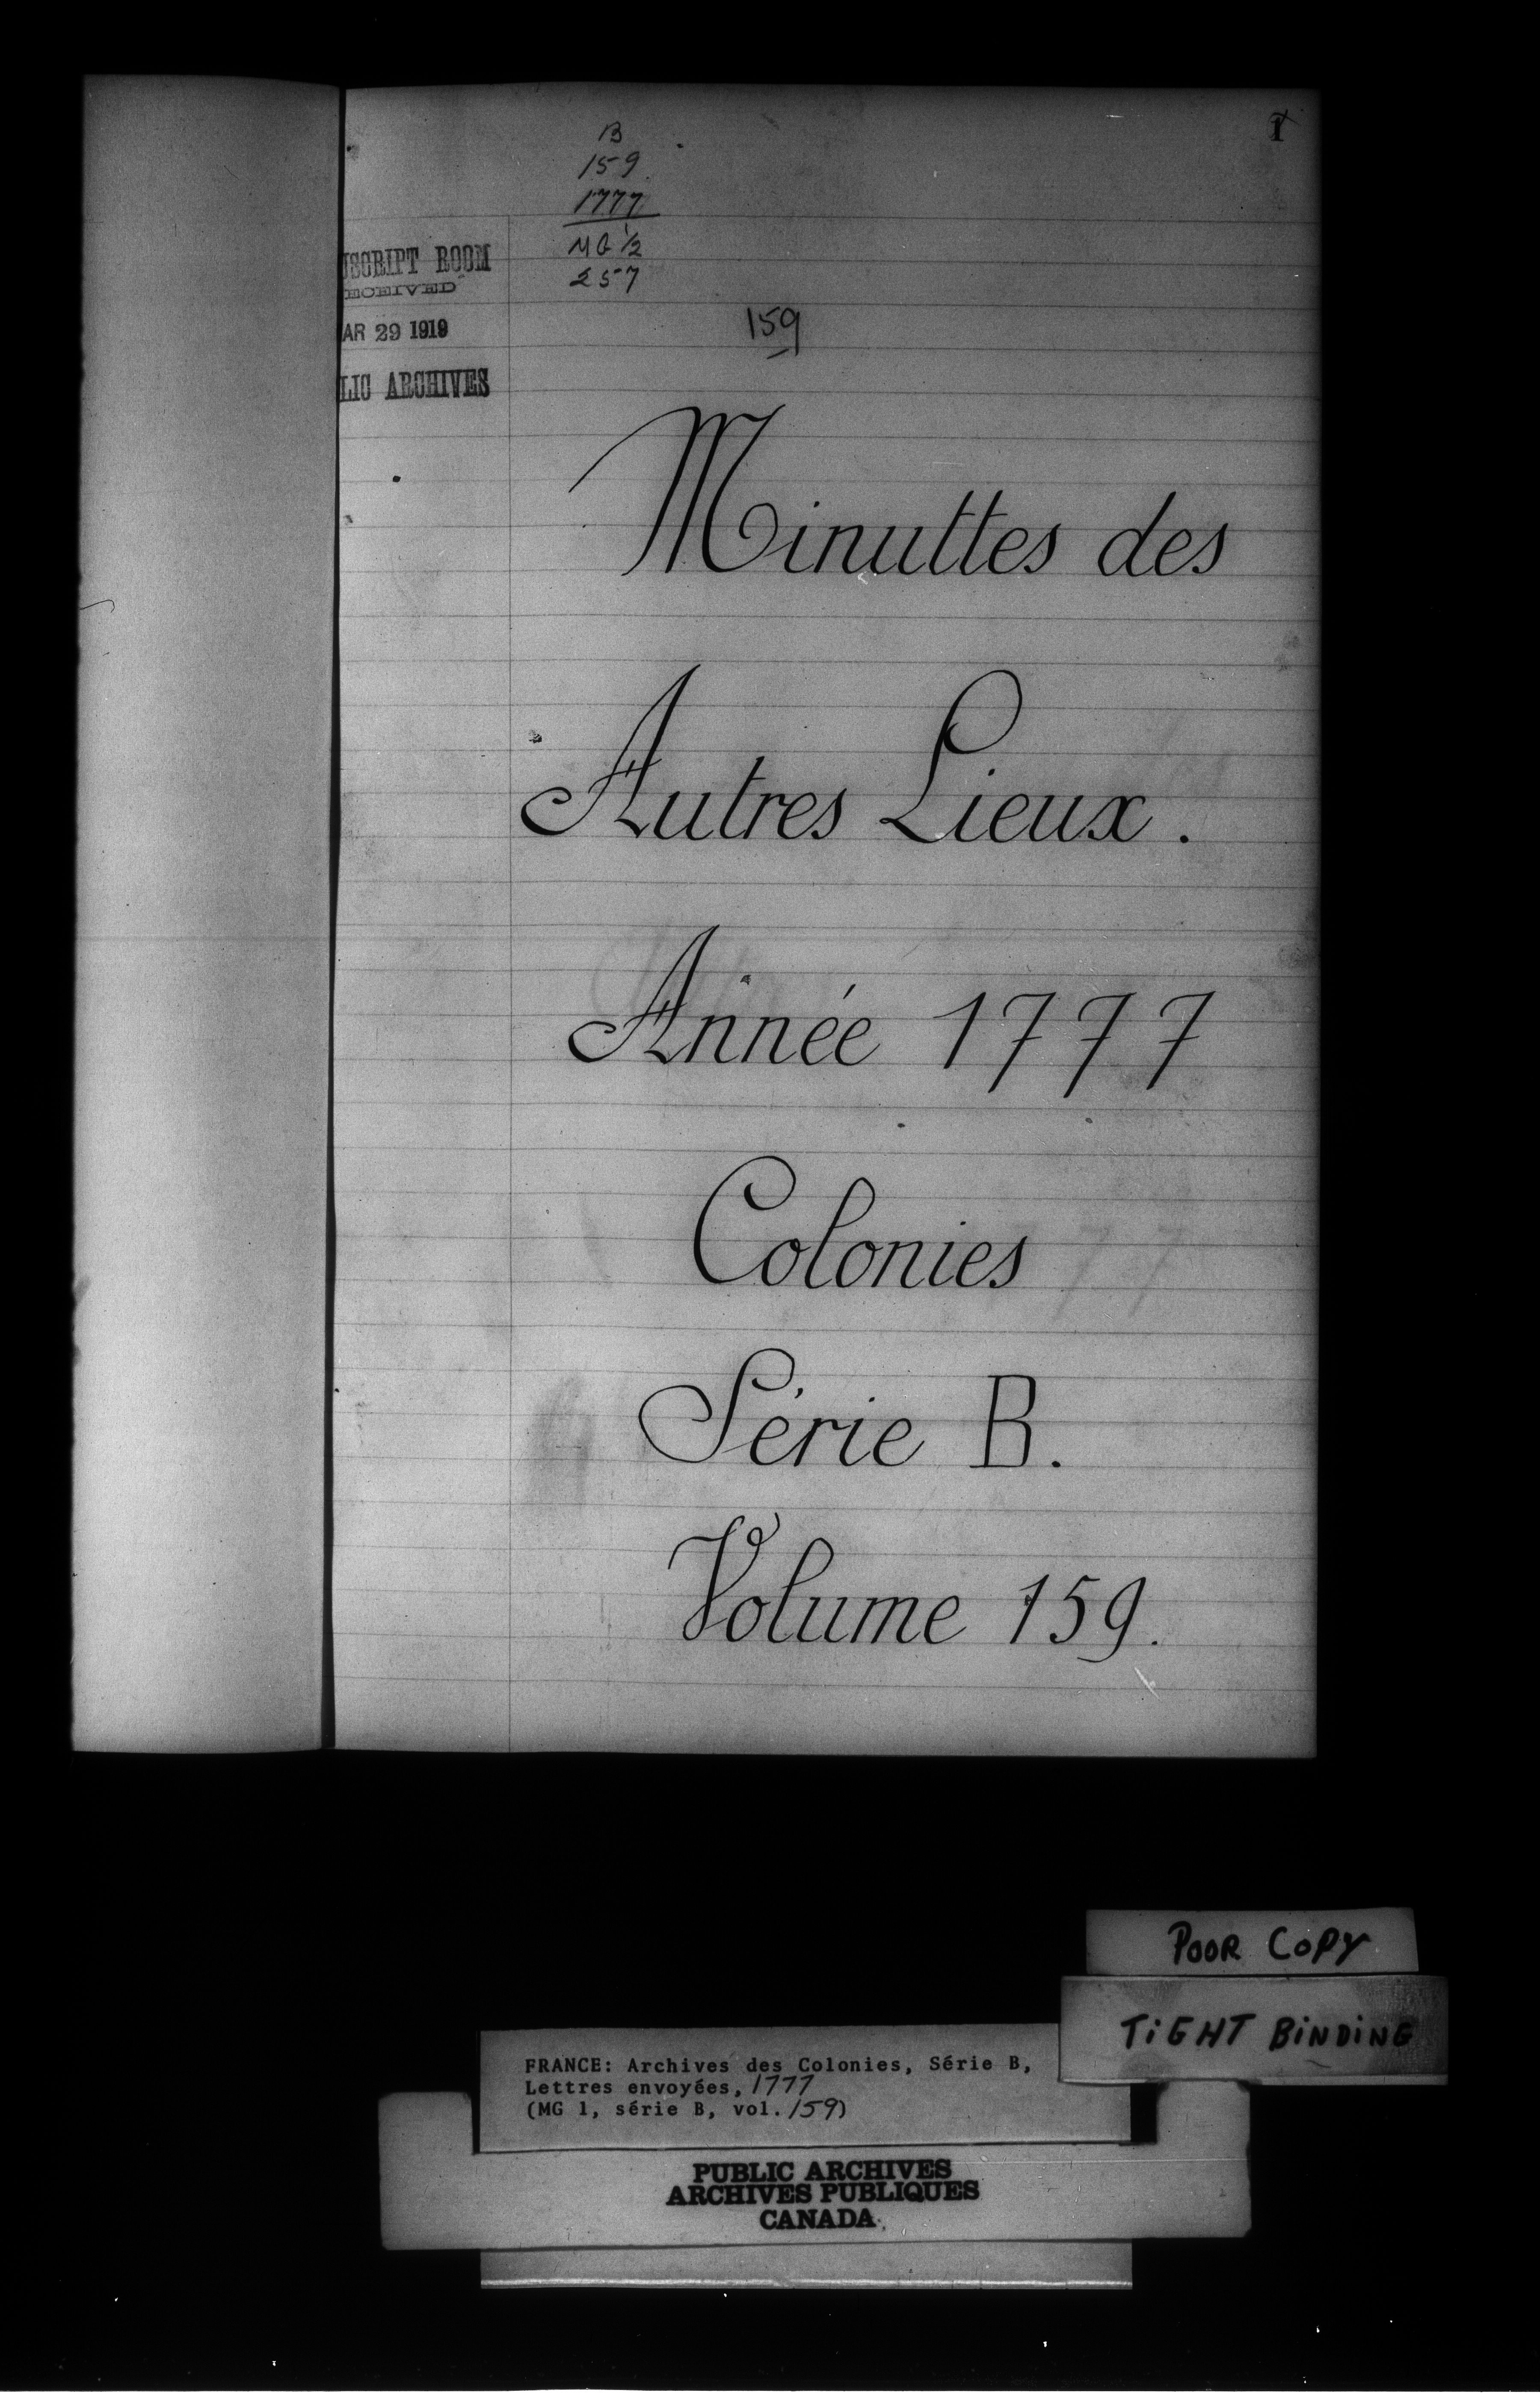 1
B
159
1777
MG 1/2
257
USCRIPT ROOM
ECEIVED
AR 29 1919
LIC ARCHIVES
159
Minuttes des
Autres Lieux.
Année 1777
Colonies
Série B.
Volume 159.
POOR COPY
TiGHT BiNDiNG
FRANCE: Archives des Colonies, Série B,
Lettres envoyées, 1777
(MG 1, série B, vol. 159)
PUBLIC ARCHIVES
ARCHIVES PUBLIQUES
CANADA